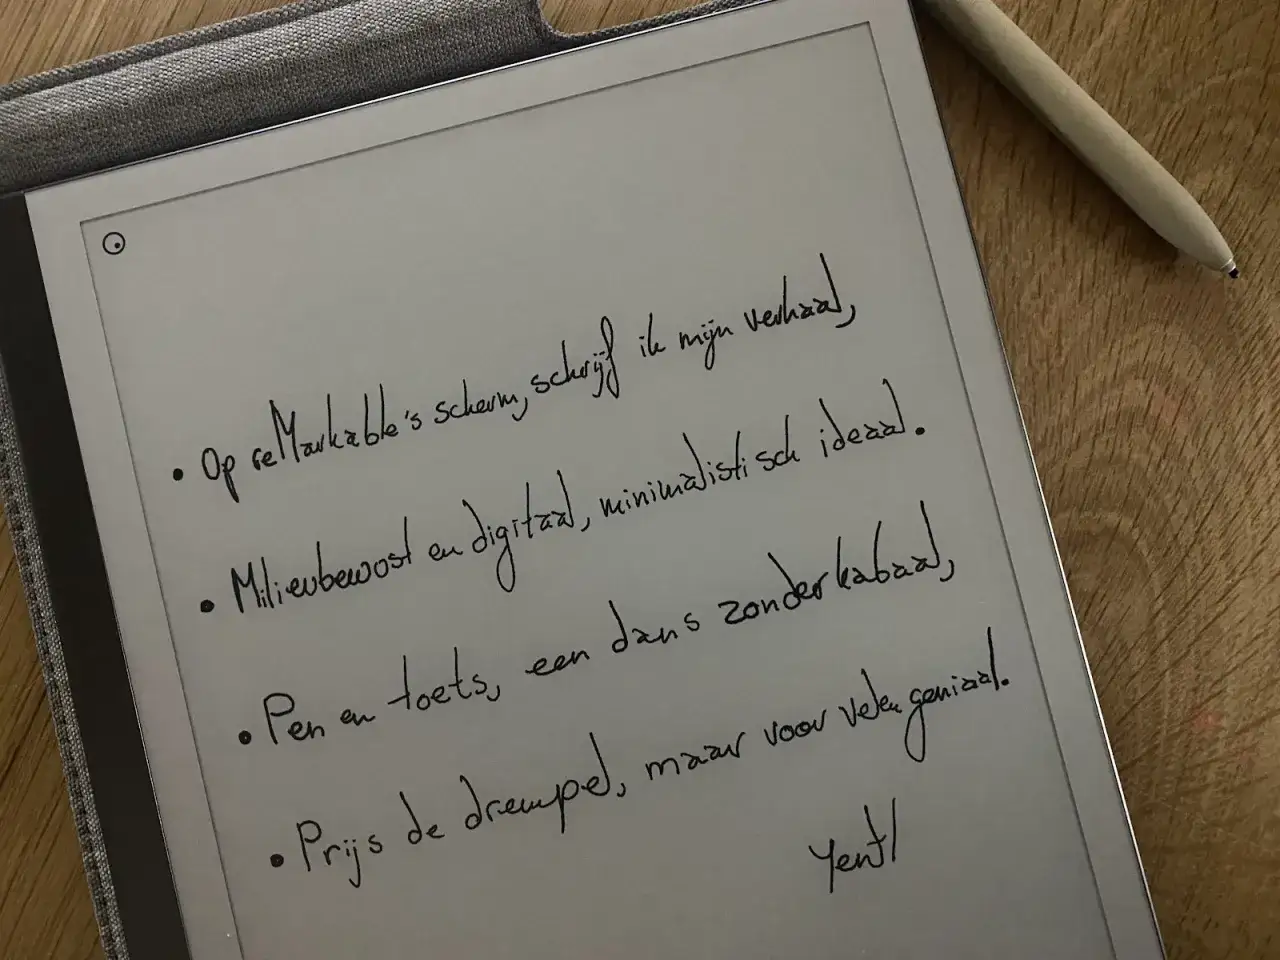 • Op reMarkable's scherm, schrijf ik mijn verhaal,
• Milieubewust en digitaal, minimalistisch ideaal.
• Pen en toets, een dans zonder kabaal,
• Prijs de drempel, maar voor velen geniaal.
Yentl